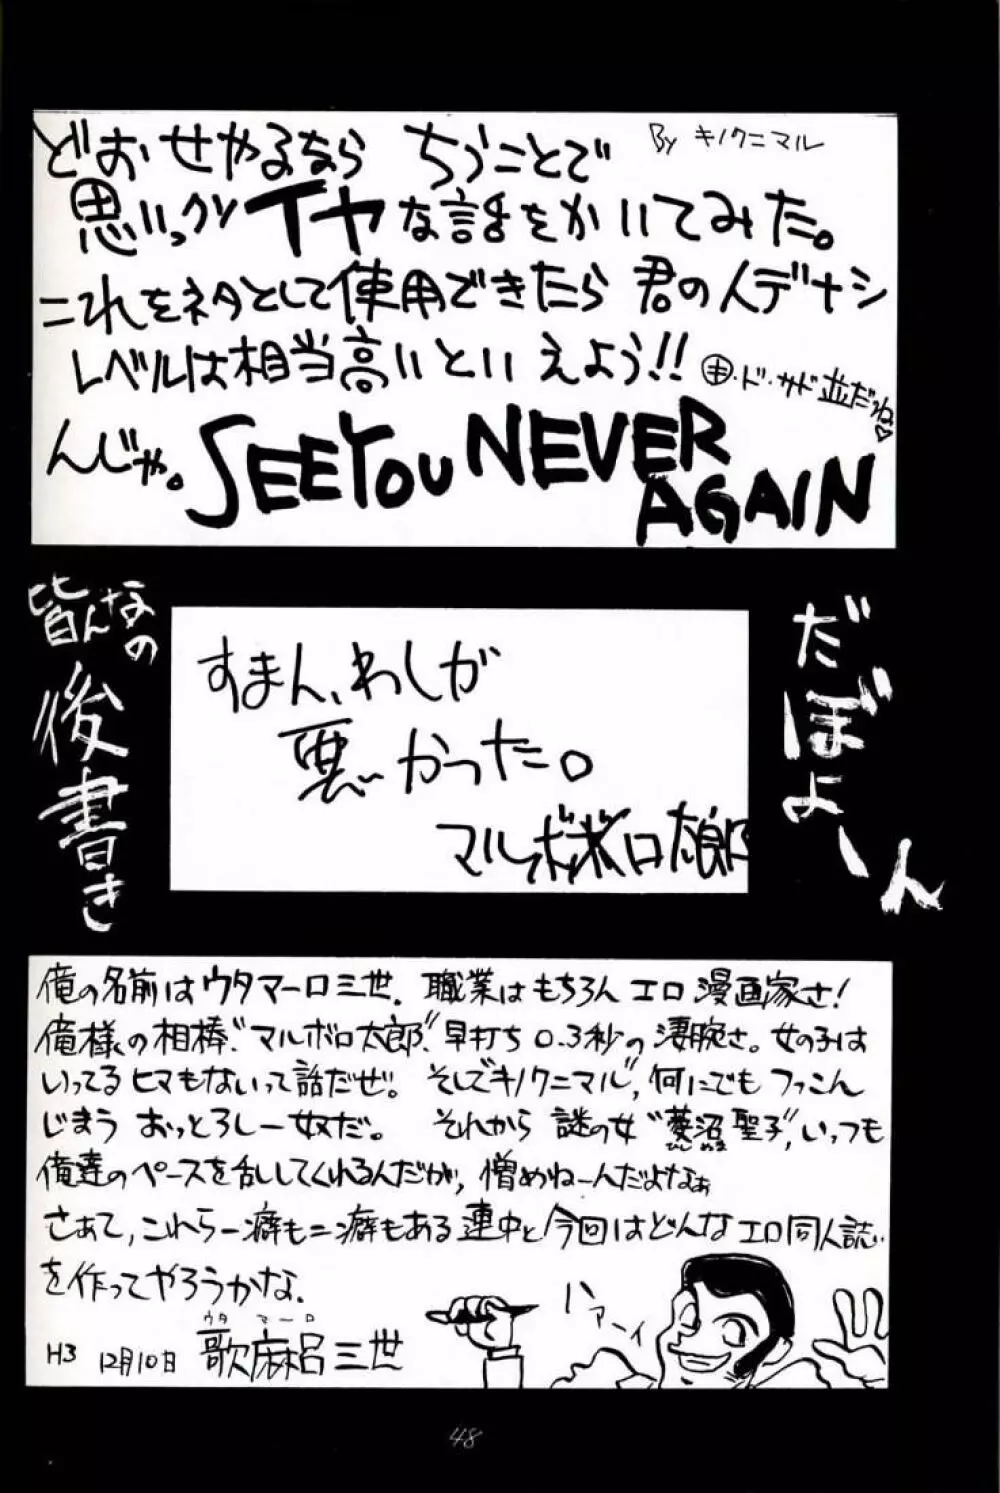 どおせやるなら ちうことで
By キノクニマル
思いっクソイヤな話をかいてみた。
これをネタとして使用できたら 君の人デナシ
レベルは相当高いといえよう!!
・ド・サド並だね♡
んじゃ。SEE YOU NEVER AGAIN
だぼよーん
皆んなの
後書き
すまん、わしが
悪かった。
マルボロ太郎
俺の名前はウタマーロ三世. 職業はもちろんエロ漫画家さ!
俺様の相棒“マルボロ太郎”、早打ち0.3秒の凄腕さ。女の子は
いってるヒマもないって話だぜ。 そして“キノクニマル”, 何にでもつっこん
じまう おっとろしー奴だ。 それから 謎の女“菱沼聖子”, いっつも
ひしぬま
俺達のペースを乱してくれるんだが, 憎めねーんだよなぁ
さあて, これら一癖も二癖もある連中と今回はどんなエロ同人誌
を作ってやろうかな.
ウタマーロ
H3 12月10日 歌麻呂三世
ハァーイ
48